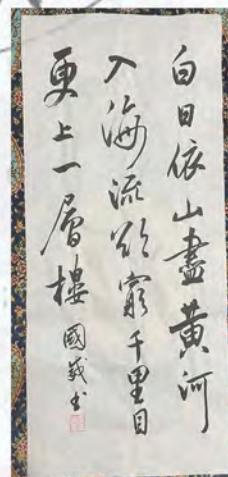 白日依山盡黃河
入海流欲窮千里目
更上一層樓 國義書